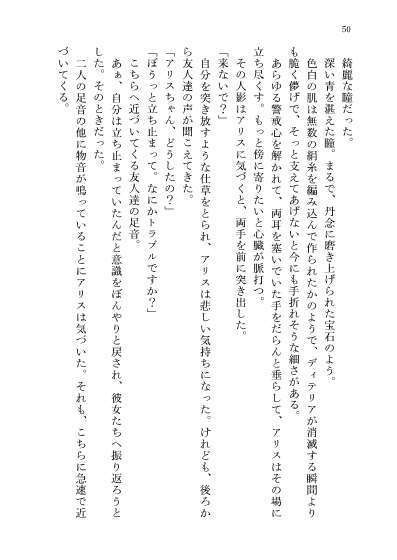 50
綺麗な瞳だった。
深い青を蓄えた瞳。まるで、丹念に磨き上げられた宝石のよう。
色白の肌は無数の絹糸を編み込んで作られたかのようで、ディテリアが消滅する瞬間より
も脆く儚げで、そっと支えてあげないと今にも手折れそうな細さがある。
あらゆる警戒心を解かれて、両耳を塞いでいた手をだらんと垂らして、アリスはその場に
立ち尽くす。もっと傍に寄りたいと心臓が脈打つ。
その人影はアリスに気づくと、両手を前に突き出した。
「来ないで？」
自分を突き放すような仕草をとられ、アリスは悲しい気持ちになった。けれども、後ろか
ら友人達の声が聞こえてきた。
「アリスちゃん、どうしたの？」
「ぼうっと立ち止まって。なにかトラブルですか？」
こちらへ近づいてくる友人達の足音。
あぁ、自分は立ち止まっていたんだと意識をぼんやりと戻され、彼女たちへ振り返ろうと
した。そのときだった。
二人の足音の他に物音が鳴っていることにアリスは気づいた。それも、こちらに急速で近
づいてくる。